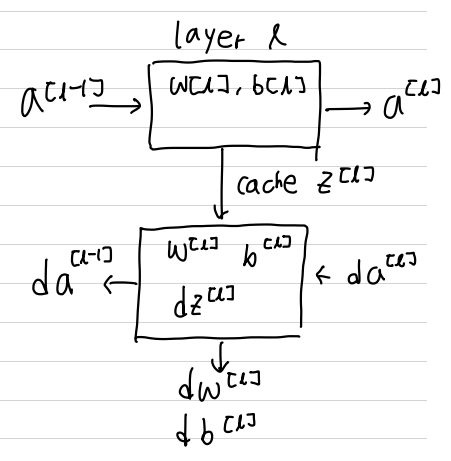 layer l
a[l-1] w[l], b[l] a[l]
cache z[l]
da[l-1] w[l] b[l] da[l]
dz[l]
dw[l]
db[l]